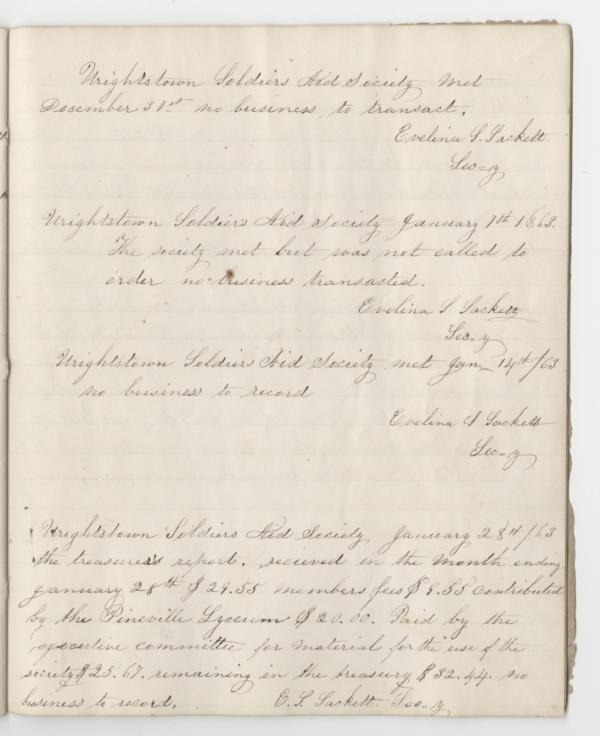 Wrightstown Soldiers Aid Society met
December 31st no business to transact.
Evelina S. Sackett
Sec-y
Wrightstown Soldiers Aid Society January 7th 1863.
The society met but was not called to
order no business transacted.
Evelina S Sackett
Sec-y
Wrightstown Soldiers Aid Society met Jan 14th/63
no business to record
Evelina S Sackett
Sec-y
Wrightstown Soldiers Aid Society January 28th/63
the treasurer's report. recieved in the month ending
January 28th $29.55 members fees $9.55 contributed
by the Pineville Lyceum $20.00. Paid by the
executive committee for material for the use of the
society $25.67. remaining in the treasury $32.44. no
business to record. E. S. Sackett. Sec-y